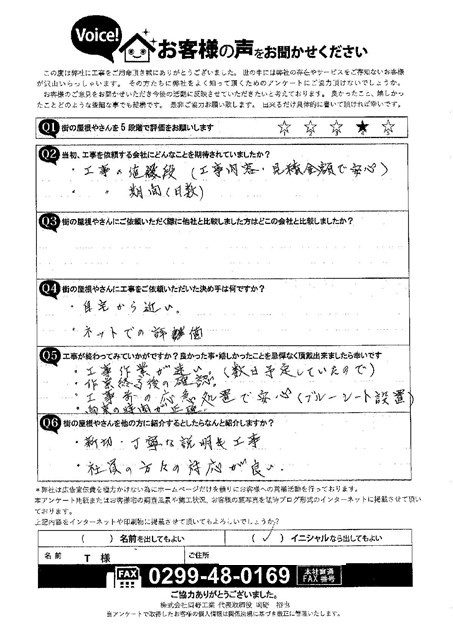 Voice!
お客様の声をお聞かせください
この度は弊社に工事をご用命頂き誠にありがとうございました。世の中には弊社の存在やサービスをご存知ないお客様
が沢山いらっしゃいます。その方たちに弊社をよく知って頂くためのアンケートにご協力頂けないでしょうか。
お客様のご意見をお聞かせいただき今後の活動に反映させていただきたいと考えております。良かったこと、嬉しかっ
たことどのような些細な事でも結構です。是非ご協力お願い致します。出来るだけ具体的に書いて頂ければ幸いです。
Q1 街の屋根やさんを5段階で評価をお願いします ☆1 ☆2 ☆3 ★4 ☆5
Q2 当初、工事を依頼する会社にどんなことを期待されていましたか?
・工事の値段 (工事内容・見積金額で安心)
・〃 期間(日数)
Q3 街の屋根やさんにご依頼いただく際に他社と比較しました方はどこの会社と比較しましたか?
Q4 街の屋根やさんに工事をご依頼いただいた決め手は何ですか?
・自宅から近い。
・ネットでの評価
Q5 工事が終わってみていかがですか?良かった事・嬉しかったことを忌憚なく頂戴出来ましたら幸いです
・工事作業が速い。(数日予定していたので)
・作業終了後の確認。
・工事前の応急処置で安心(ブルーシート設置)
Q6 街の屋根やさんを他の方に紹介するとしたらなんと紹介しますか?
・親切・丁寧な説明と工事
・社員の方々の対応が良い.
*弊社は広告宣伝費を極力かけない為にホームページだけを頼りにお客様への貢献活動を行っております。
本アンケート用紙またはお客様宅の調査風景や施工状況、お客様の顔写真を弊社ブログ形式のインターネットに掲載させて頂いております。
上記内容をインターネットや印刷物に掲載させて頂いてもよろしいでしょうか?
( ) 名前を出してもよい (✓) イニシャルなら出してもよい
名前 T 様 ご住所
FAX 0299-48-0169 本社直通 FAX番号
ご協力ありがとうございました。
株式会社岡野工業 代表取締役 岡野
良アンケートで取得したお客様の個人情報は関係法規に基づき厳正に管理いたします。